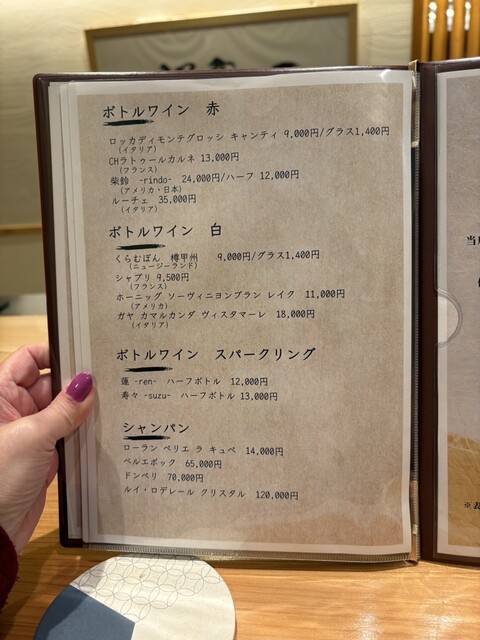 ボトルワイン 赤
ロッカディモンテグロッシ キャンティ 9,000円/グラス1,400円
(イタリア)
CHラトゥールカルネ 13,000円
(フランス)
柴鈴 -rindo- 24,000円/ハーフ 12,000円
(アメリカ・日本)
ルーチェ 35,000円
(イタリア)
ボトルワイン 白
くらむぼん 樽甲州 9,000円/グラス1,400円
(ニュージーランド)
シャブリ 9,500円
(フランス)
ホーニッグ ソーヴィニヨンブラン レイク 11,000円
(アメリカ)
ガヤ カマルカンダ ヴィスタマーレ 18,000円
(イタリア)
ボトルワイン スパークリング
蓮 -ren- ハーフボトル 12,000円
寿々 -suzu- ハーフボトル 13,000円
シャンパン
ローラン ペリエ ラ キュベ 14,000円
ベルエポック 65,000円
ドンペリ 70,000円
ルイ・ロデレール クリスタル 120,000円
当
※表